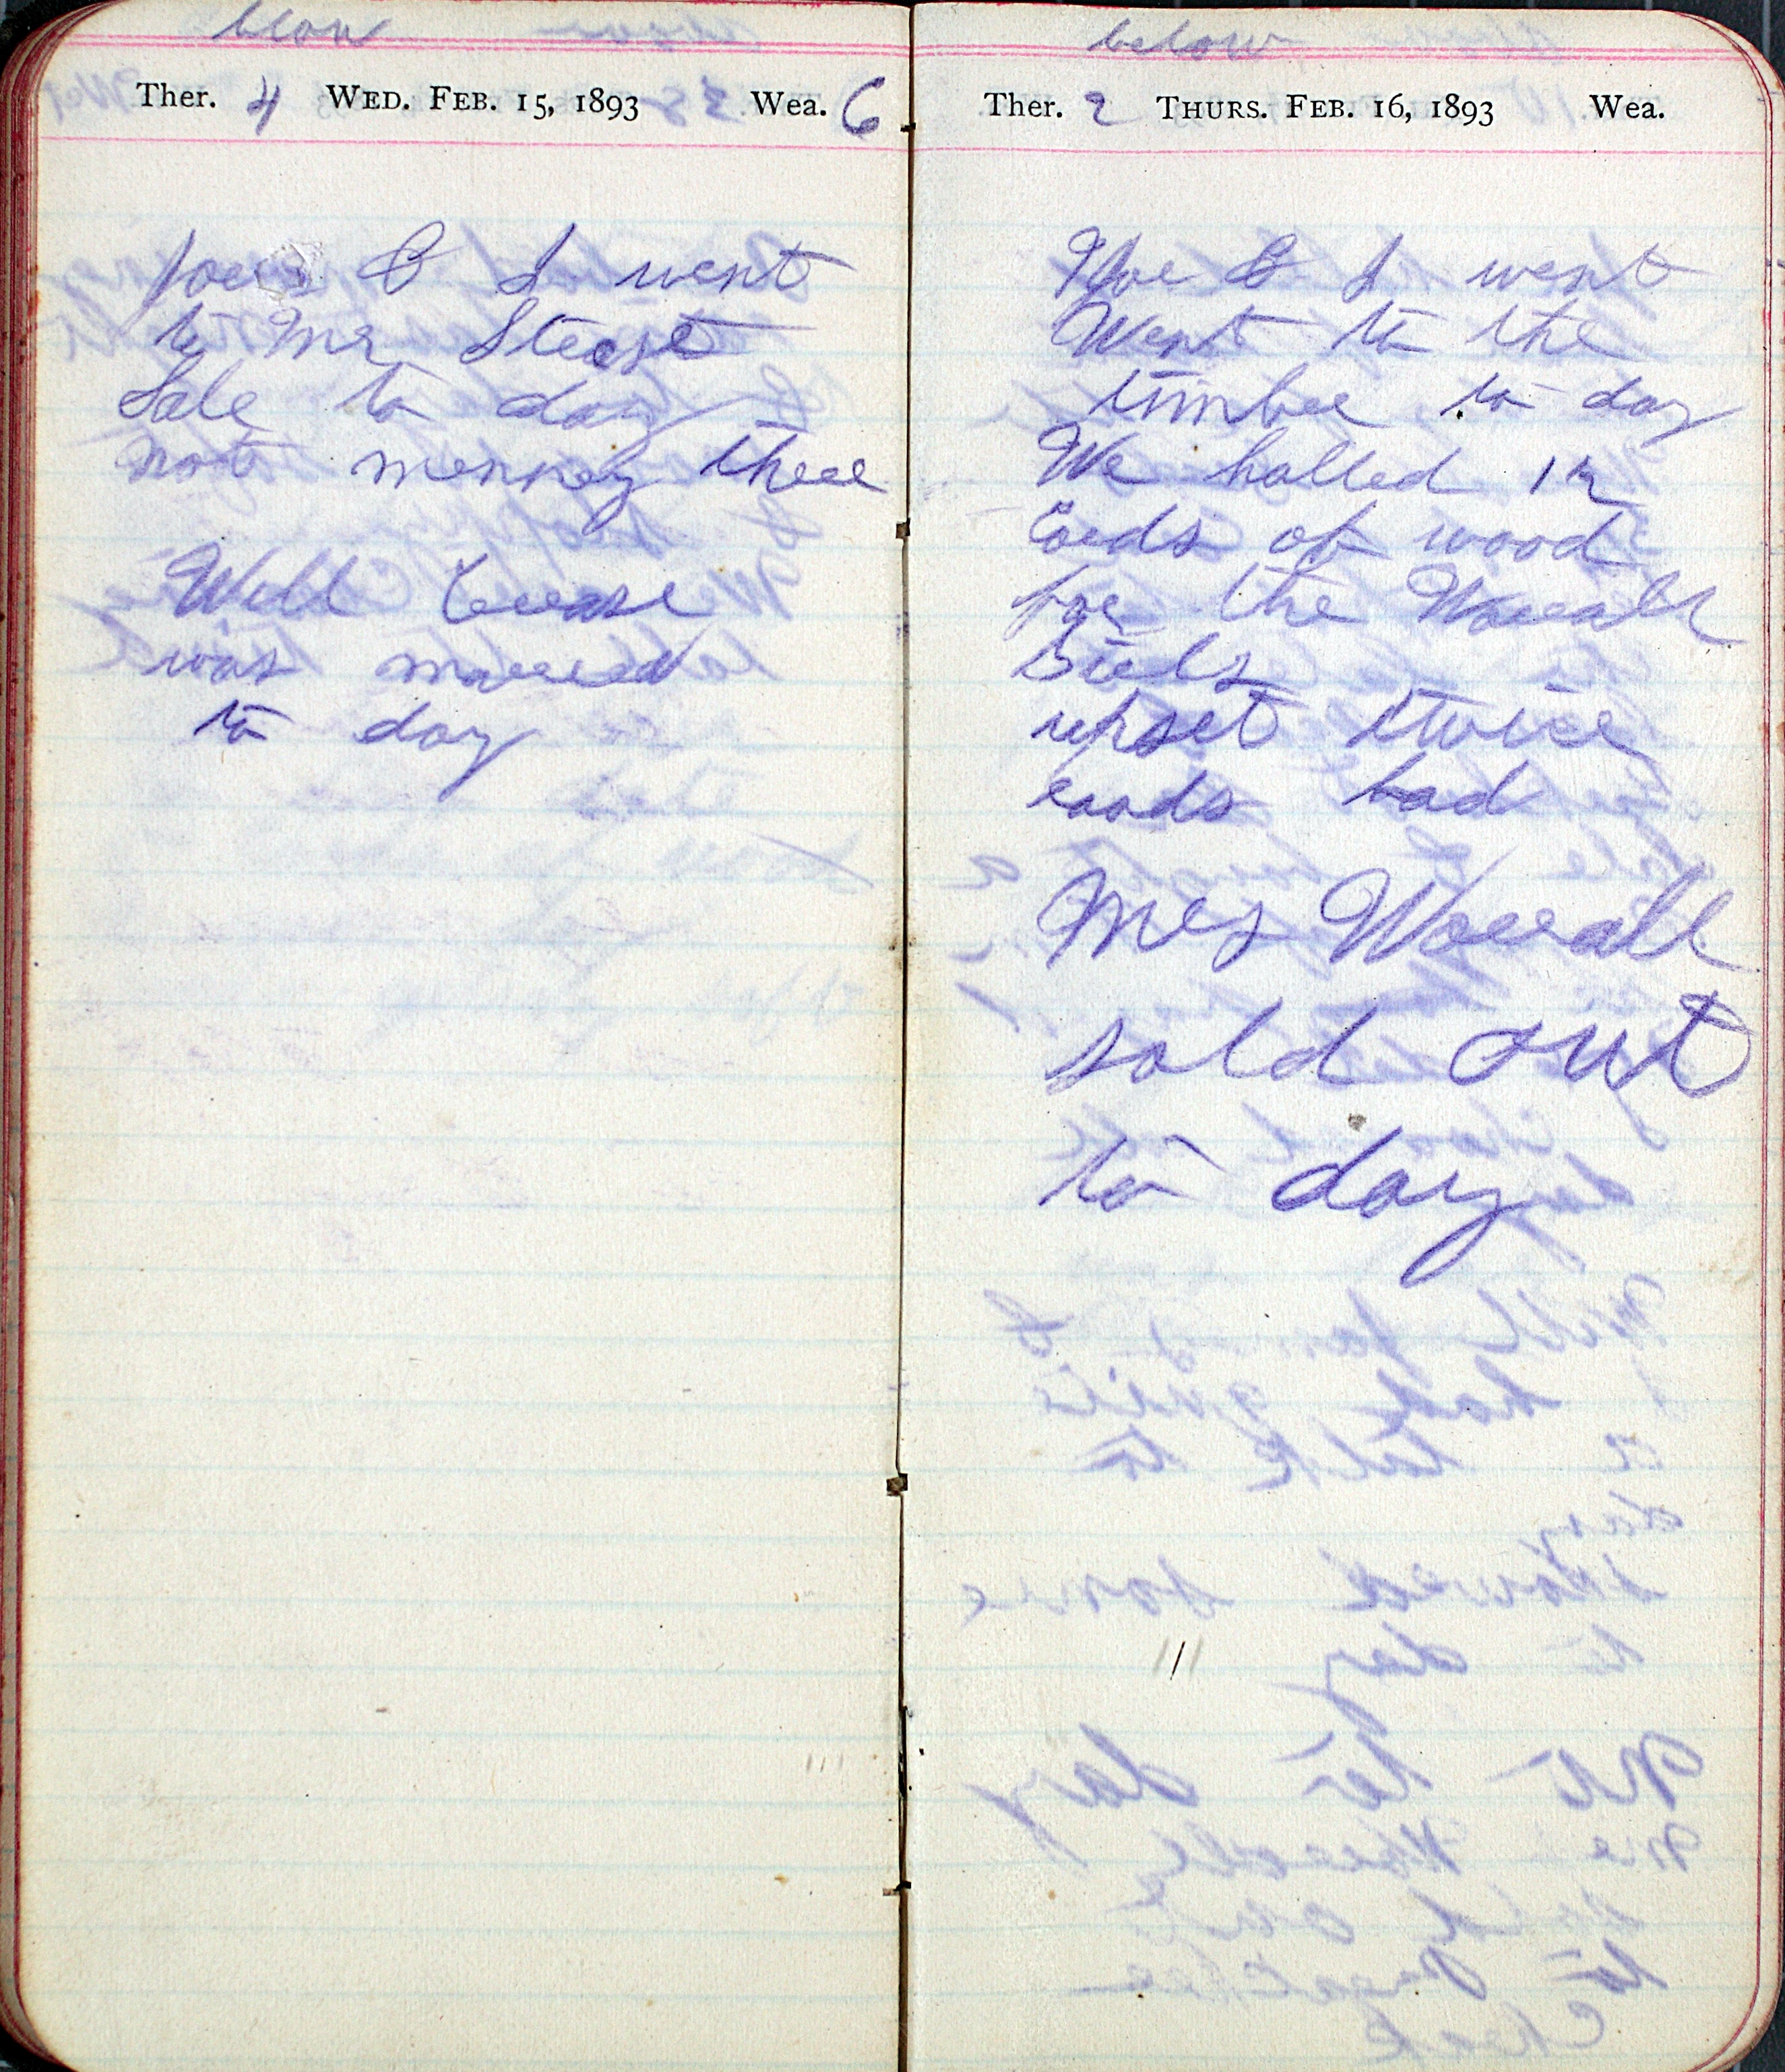 blow
Ther. 4 WED. FEB. 15, 1893 Wea. 6
Joe & I went
to Mr
Sale to day
not menney there
Will
was marred
to day
below
Ther. 2 THURS. FEB. 16, 1893 Wea.
Joe & I went
Went to the
timber to day
We halled 12
Cords of wood
for the Worrall
upset twice
roads bad
Mrs Worrall
sold out
to day